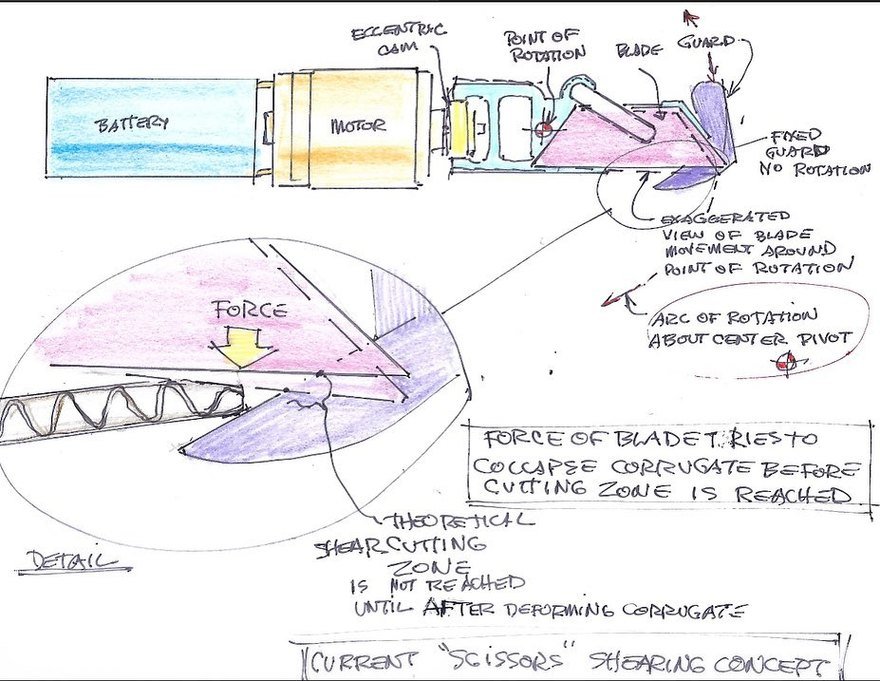 ECCENTRIC
CAM
POINT OF
ROTATION
BLADE
GUARD
BATTERY
MOTOR
FIXED
GUARD
NO ROTATION
EXAGGERATED
VIEW OF BLADE
MOVEMENT AROUND
POINT OF ROTATION
FORCE
ARC OF ROTATION
ABOUT CENTER PIVOT
FORCE OF BLADE TRIES TO
COLLAPSE CORRUGATE BEFORE
CUTTING ZONE IS REACHED
THEORETICAL
SHEAR CUTTING
ZONE
IS NOT REACHED
UNTIL AFTER DEFORMING CORRUGATE
DETAIL
CURRENT "SCISSORS" SHEARING CONCEPT